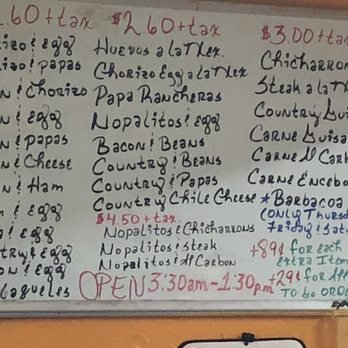 .60 + tax
rizo & egg
rizo & papas
n & Chorizo
n & egg
n & papas
n & Cheese
n & Ham
& egg
& egg
try & egg
on & egg
laqueles
$2.60 + tax
Huevos a la Mex.
Chorizo Egg a la Mex
Papa Rancheras
Nopalitos & egg
Bacon & Beans
Country & Beans
Country & Papas
Country Chile Cheese
$4.50 + tax.
Nopalitos & Chicharrons
Nopalitos & steak
Nopalitos & Al Carbon
$3.00 + tax
Chicharron
Steak a la
Country Gui
Carne Guisa
Carne Al Carb
Carne Encebo
★Barbacoa
(Only Thursd
Friday & Satu
+89¢ for each
extra Item
+29¢ for
To be ORDE
OPEN 3:30am - 1:30pm